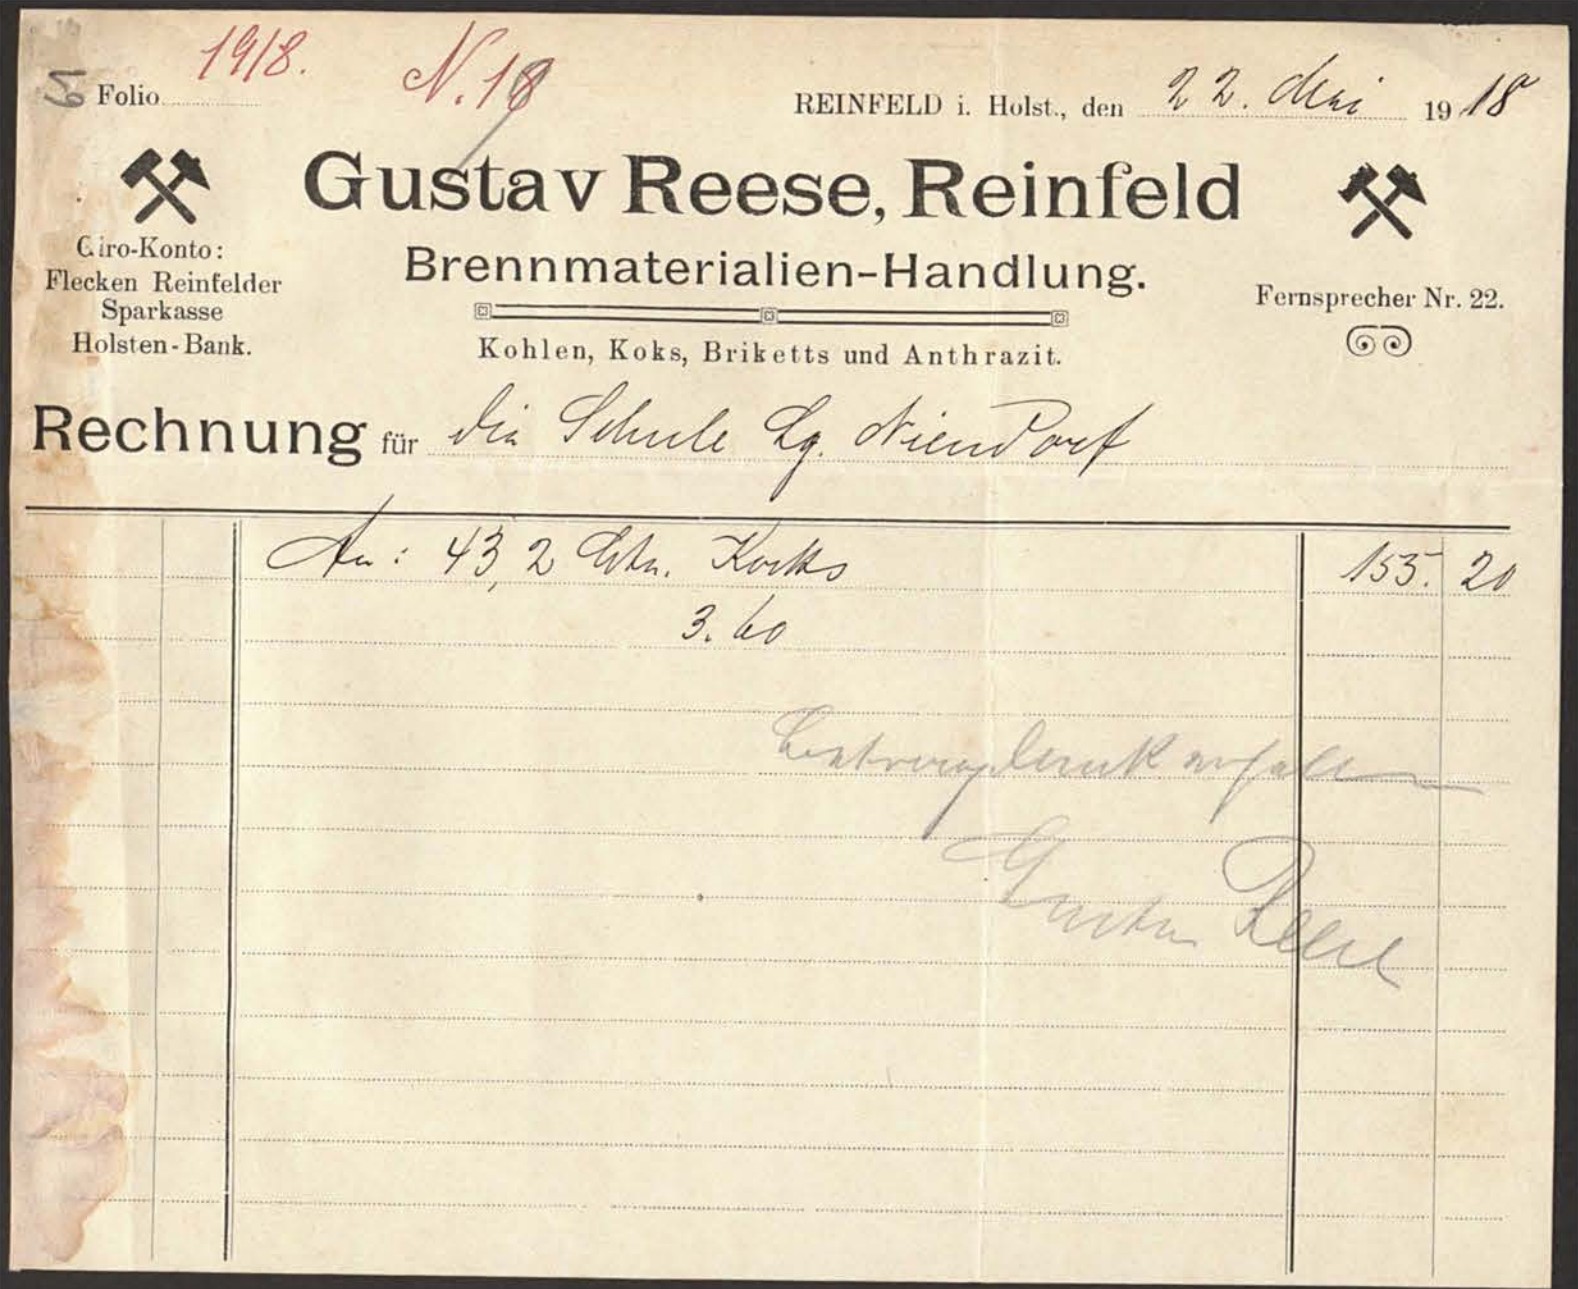 1918. N. 18
Folio
REINFELD i. Holst., den 22. Mai 1918
Gustav Reese, Reinfeld
Brennmaterialien-Handlung.
Giro-Konto:
Flecken Reinfelder
Sparkasse
Holsten-Bank.
Fernsprecher Nr. 22.
Kohlen, Koks, Briketts und Anthrazit.
Rechnung für die Schule Lg. Niendorf
An: 43,2 Ctn. Koaks 155. 20
3.60
Betrag dank erhalten
Gustav Reese